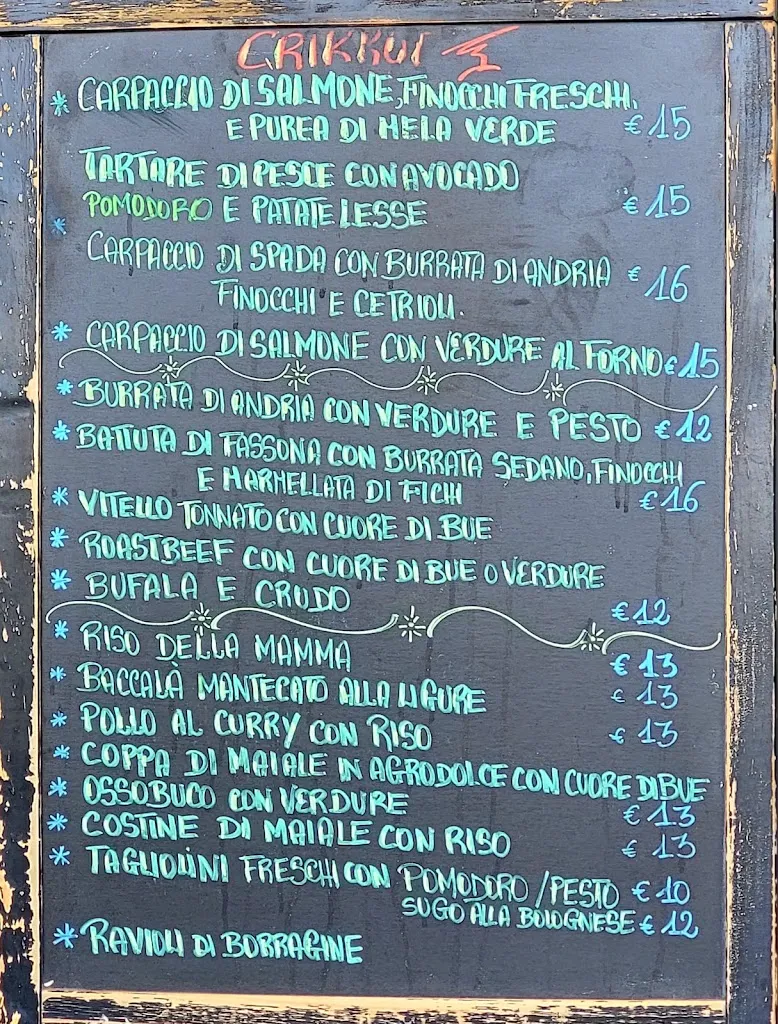 CRIKKUI
* CARPACCIO DI SALMONE, FINOCCHI FRESCHI.
E PUREA DI MELA VERDE € 15
TARTARE DI PESCE CON AVOCADO
* POMODORO E PATATE LESSE € 15
CARPACCIO DI SPADA CON BURRATA DI ANDRIA € 16
FINOCCHI E CETRIOLI.
* CARPACCIO DI SALMONE CON VERDURE AL FORNO € 15
* BURRATA DI ANDRIA CON VERDURE E PESTO € 12
* BATTUTA DI FASSONA CON BURRATA SEDANO, FINOCCHI
E MARMELLATA DI FICHI € 16
* VITELLO TONNATO CON CUORE DI BUE
* ROASTBEEF CON CUORE DI BUE O VERDURE
* BUFALA E CRUDO € 12
* RISO DELLA MAMMA € 13
* BACCALÀ MANTECATO ALLA LIGURE € 13
* POLLO AL CURRY CON RISO € 13
* COPPA DI MAIALE IN AGRODOLCE CON CUORE DI BUE
* OSSOBUCO CON VERDURE € 13
* COSTINE DI MAIALE CON RISO € 13
* TAGLIOLINI FRESCHI CON POMODORO / PESTO € 10
SUGO ALLA BOLOGNESE € 12
* RAVIOLI DI BORRAGINE